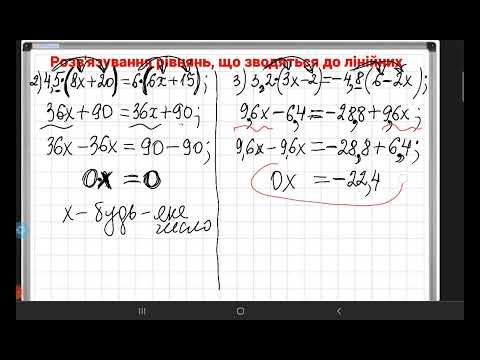 Розв'язування рівнянь, що зводяться до лінійних
2) 4,5·(8x+20)=6·(6x+15);
36x+90=36x+90;
36x-36x=90-90;
0·x=0
x-будь-яке
число
3) 3,2·(3x-2)=-4,8(6-2x);
9,6x-6,4=-28,8+9,6x;
9,6x-9,6x=-28,8+6,4;
0x=-22,4